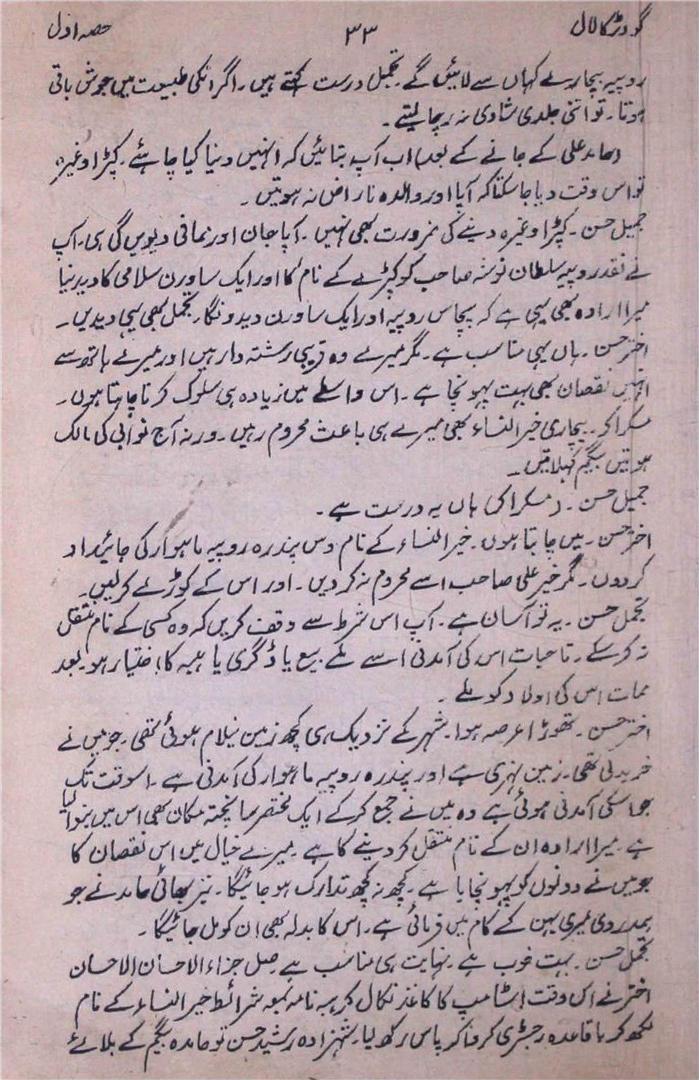 گودڑ کا لال ۳۳ حصہ اول
روپیہ بیچارے کہاں سے لائیں گے۔ تجمل درست کہتے ہیں۔ اگر انکی طبیعت میں جوش باقی
ہوتا۔ تو اتنی جلدی شادی نہ رچا لیتے۔
(حامد علی کے جانے کے بعد) اب آپ بتائیں کہ انہیں دنیا کیا چاہئے۔ کپڑا وغیرہ
تو اس وقت دیا جا سکتا کہ آپا اور والدہ ناراض نہ ہوتیں۔
جمیل حسن۔ کپڑا وغیرہ دینے کی ضرورت بھی نہیں۔ آپا جان اور نمانی دیویں گی ہی۔ آپ
نے نقد روپیہ سلطان نوشہ صاحب کو کپڑے کے نام کا اور ایک ساورن سلامی کا دیدینا
میرا ارادہ بھی یہی ہے کہ پچاس روپیہ اور ایک ساورن دیدونگا۔ تجمل بھی یہی دیدیں۔
اختر حسن۔ ہاں یہی مناسب ہے۔ مگر میرے وہ قریبی رشتہ دار ہیں اور میرے ہاتھ سے
انہیں نقصان بھی بہت پہونچا ہے۔ اس واسطے میں زیادہ ہی سلوک کرنا چاہتا ہوں۔
مسکرا کر۔ بیچاری خیر النساء بھی میرے ہی باعث محروم رہیں۔ ورنہ آج نوابی کی مالک
ہوتیں بیگم کہلاتیں۔
جمیل حسن۔ (مسکرا کر) ہاں یہ درست ہے۔
اختر حسن۔ میں چاہتا ہوں۔ خیر النساء کے نام دس پندرہ روپیہ ماہوار کی جائیداد
کر دوں۔ مگر خیر علی صاحب اسے محروم نہ کر دیں۔ اور اس کے کوڑے کر لیں۔
تجمل حسن۔ یہ تو آسان ہے۔ آپ اس شرط سے وقف کریں کہ وہ کسی کے نام منتقل
نہ کر سکے۔ تا حیات اس کی آمدنی اسے ملے بیع یا ڈگری یا ہبہ کا اختیار ہو۔ بعد
ممات اس کی اولاد کو ملے۔
اختر حسن۔ تھوڑا عرصہ ہوا۔ شہر کے نزدیک ہی کچھ زمین نیلام ہوئی تھی۔ جو میں نے
خرید لی تھی۔ زمین نہری ہے اور پندرہ روپیہ ماہوار کی آمدنی ہے۔ اسوقت تک
جو اسکی آمدنی ہوئی ہے وہ میں نے جمع کر کے ایک مختصر سا پختہ مکان بھی اس میں بنوا لیا
ہے۔ میرا ارادہ ان کے نام منتقل کر دینے کا ہے۔ میرے خیال میں اس نقصان کا
جو میں نے دونوں کو پہونچایا ہے۔ کچھ نہ کچھ تدارک ہو جائیگا۔ نیز بھائی حامد نے جو
ہمدردی میری بہن کے کام میں فرمائی ہے۔ اس کا بدلہ بھی ان کو مل جائیگا۔
تجمل حسن۔ بہت خوب ہے۔ نہایت ہی مناسب ہے ھل جزاء الاحسان الا الاحسان
اختر نے اسی وقت اسٹامپ کا کاغذ نکال کر ہبہ نامہ بمعہ شرائط خیر النساء کے نام
لکھ کر باقاعدہ رجسٹری کروا کر پاس رکھ لیا۔ شہزادہ رشید حسن تو حامدہ بیگم کے بلائے